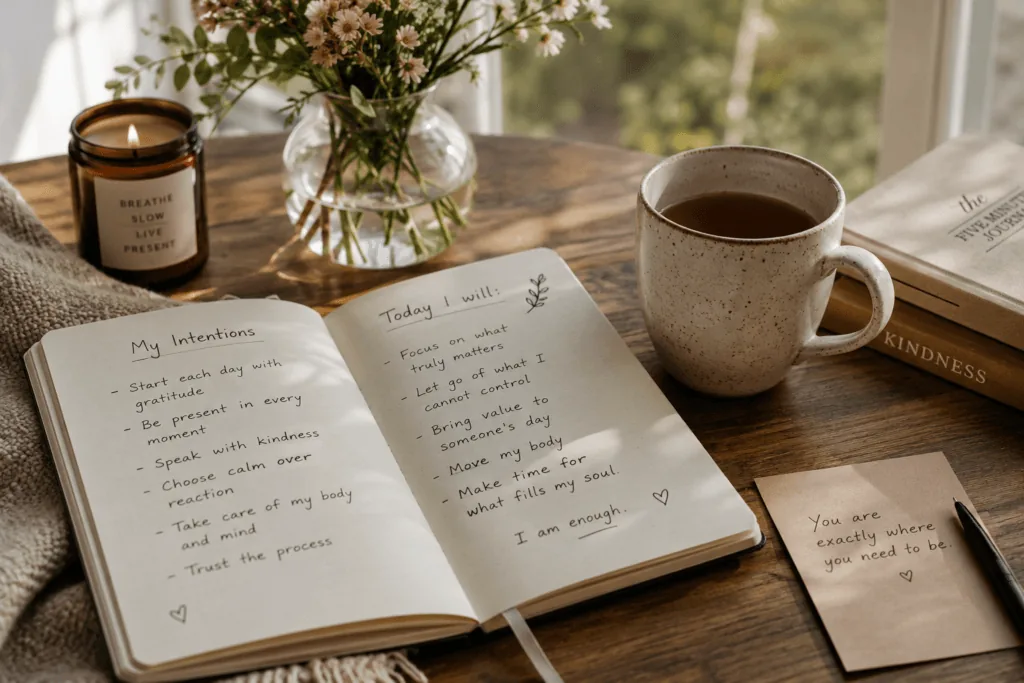 BREATHE
SLOW
LIVE
PRESENT
My Intentions
- Start each day with
gratitude
- Be present in every
moment
- Speak with kindness
- Choose calm over
reaction
- Take care of my body
and mind
- Trust the process
Today I will:
- Focus on what
truly matters
- Let go of what I
cannot control
- Bring value to
someone's day
- Move my body
- Make time for
what fills my soul.
I am enough.
the
FIVE MINUTE
JOURNAL
KINDNESS
You are
exactly where
you need to be.